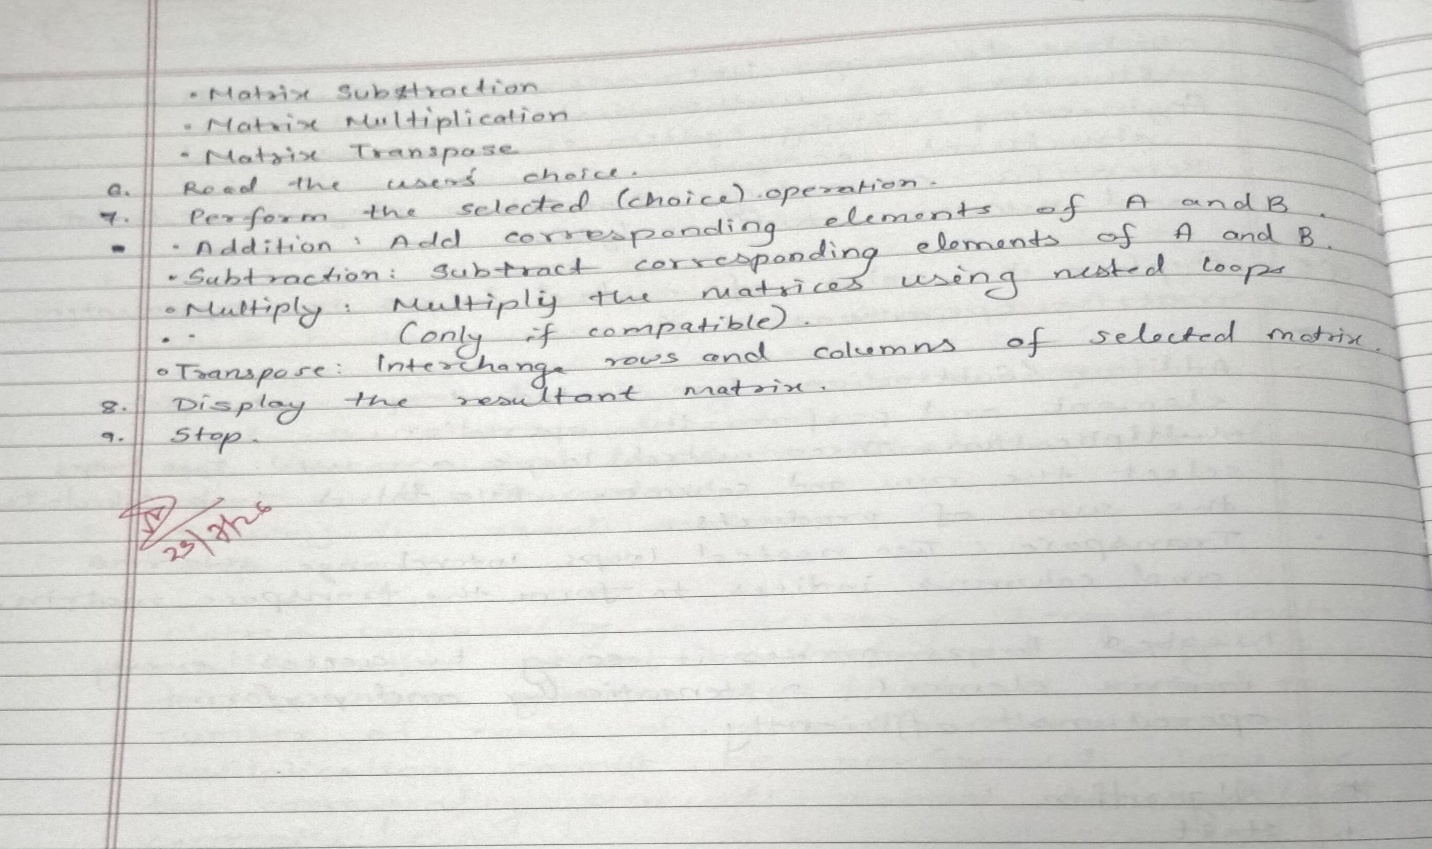 • Matrix Substraction
• Matrix Multiplication
• Matrix Transpose
6. Read the users choice.
7. Perform the selected (choice) operation.
• Addition : Add corresponding elements of A and B.
• Subtraction : Subtract corresponding elements of A and B.
• Multiply : Multiply the matrices using nested loops
(only if compatible).
• Transpose : Interchange rows and columns of selected matrix.
8. Display the resultant matrix.
9. Stop.